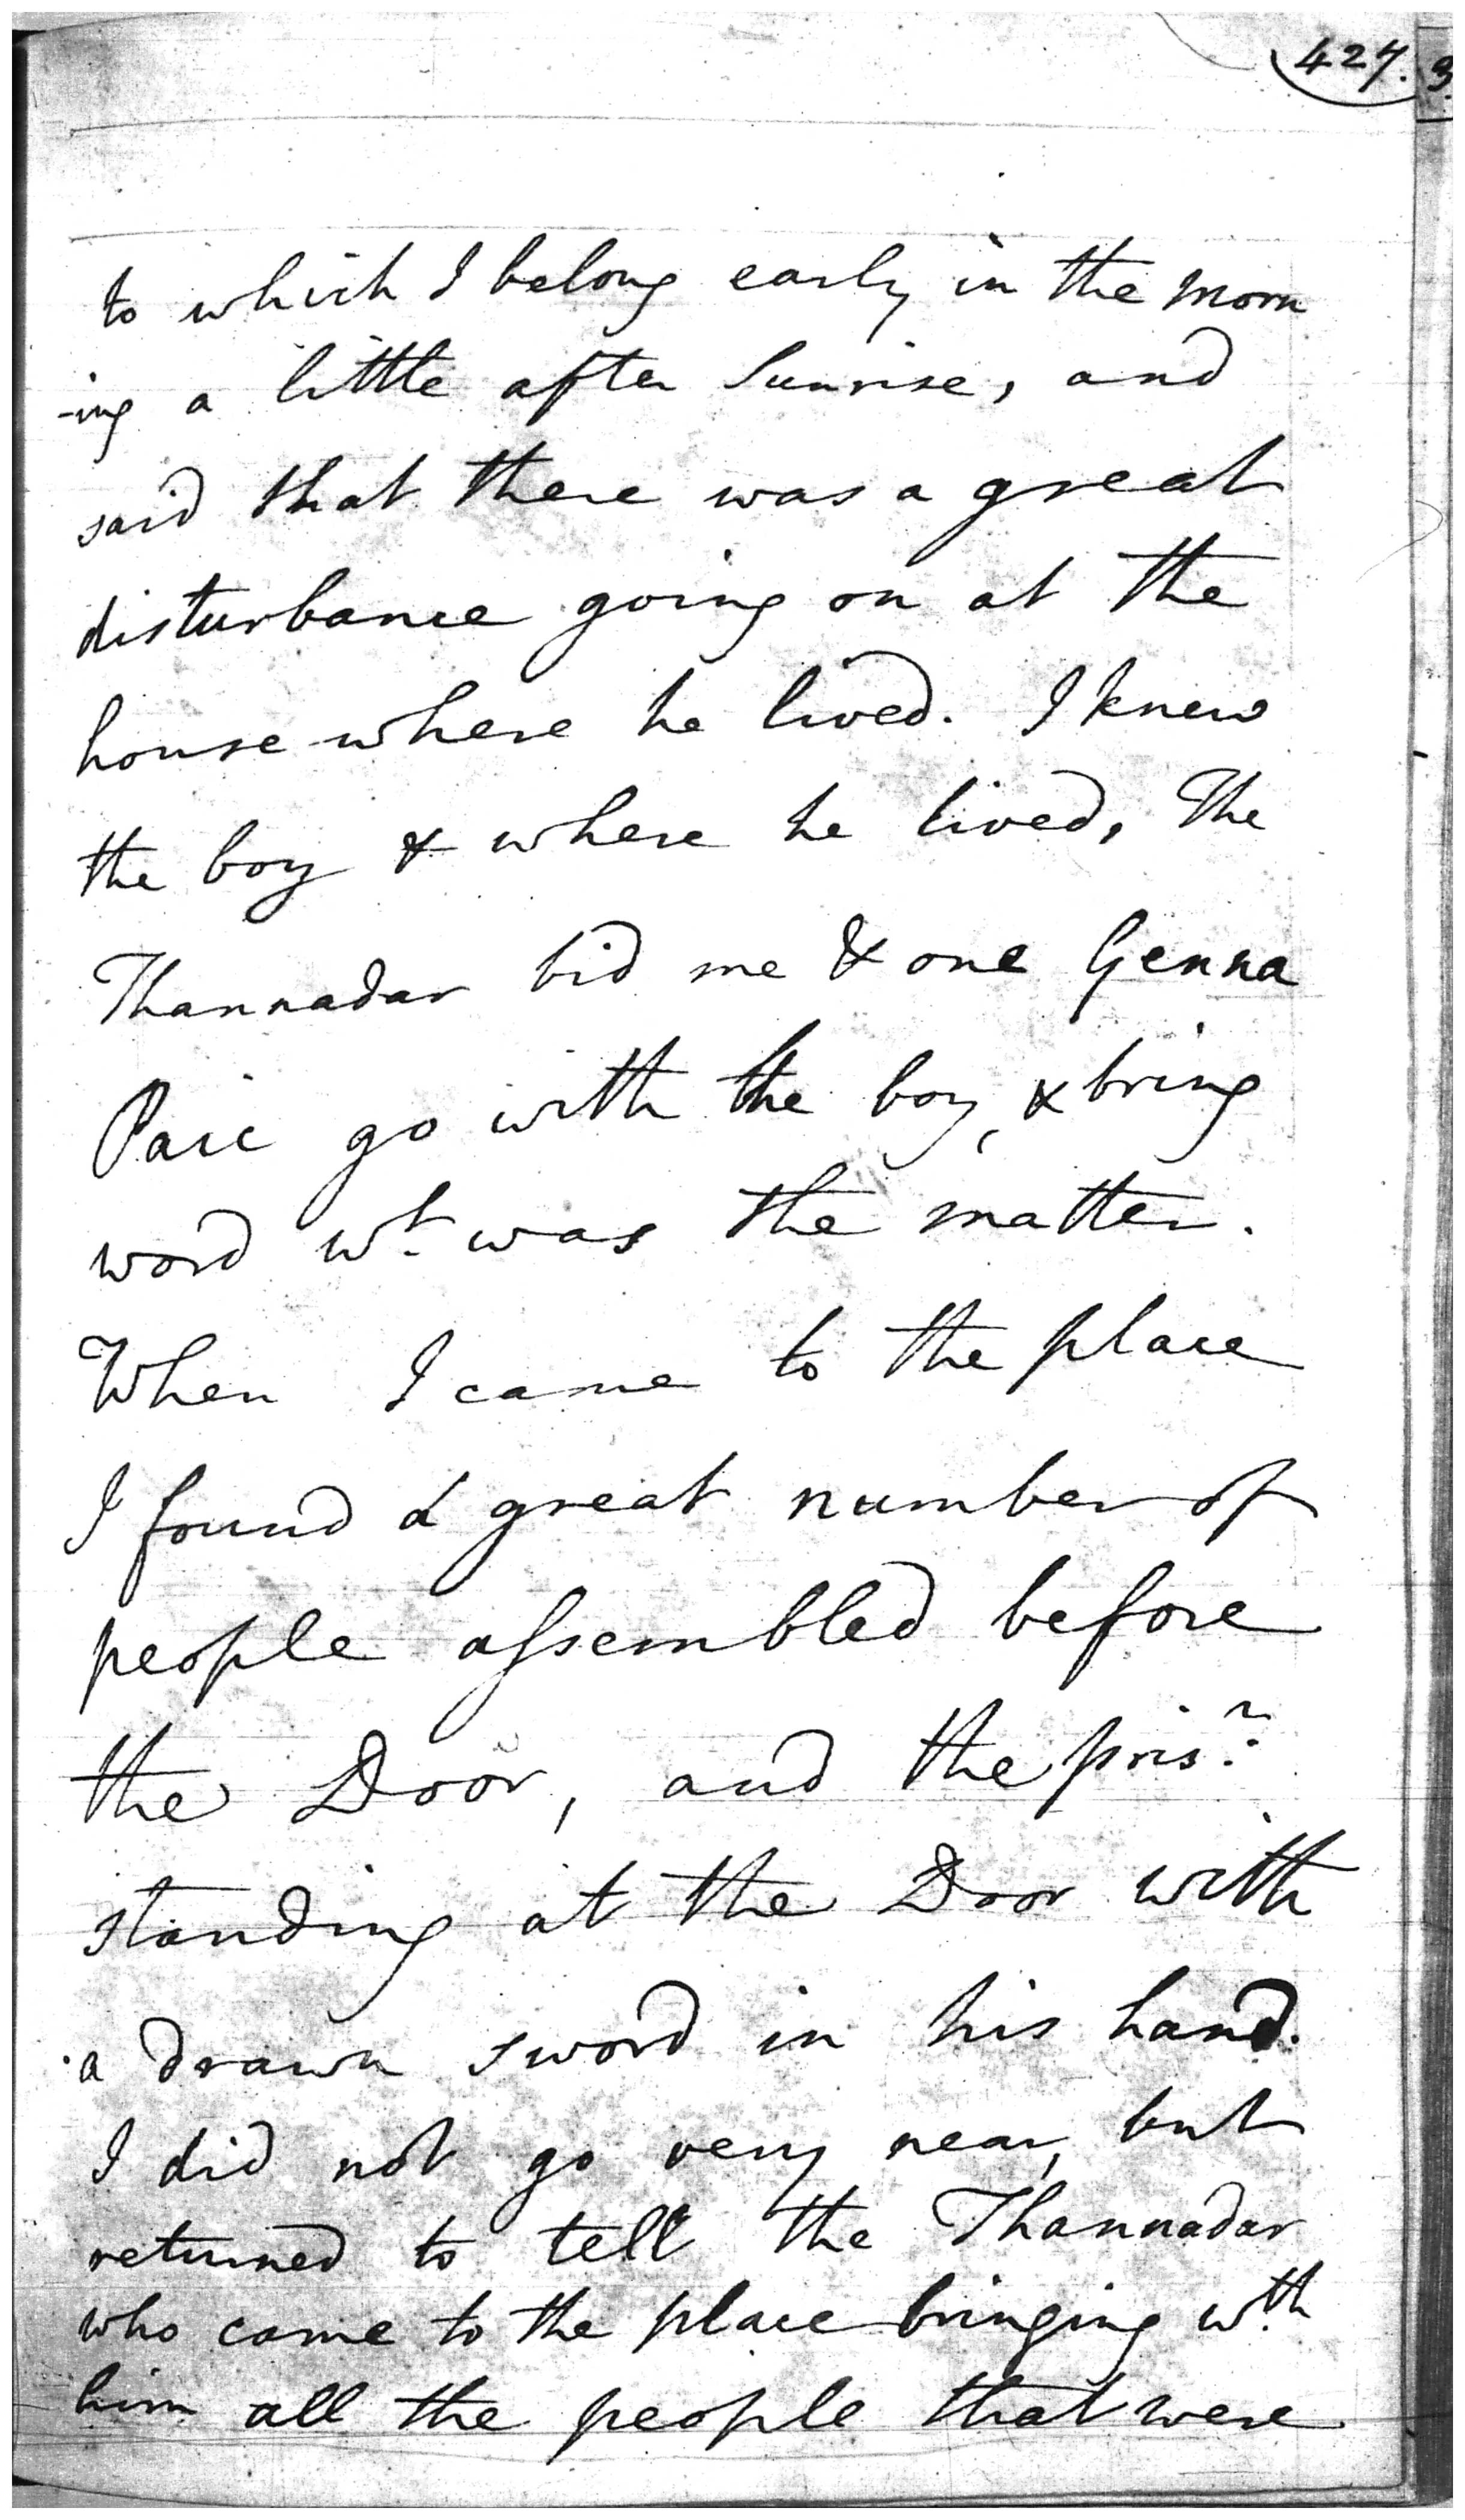 427.
to which I belong early in the morn
-ing a little after Sunrise, and
said that there was a great
disturbance going on at the
house where he lived. I knew
the boy & where he lived, The
Thannadar bid me & one Genna
Paic go with the boy, & bring
word wt. was the matter.
When I came to the place
I found a great number of
people assembled before
the Door, and the prisr.
standing at the Door with
a drawn sword in his hand.
I did not go very near, but
returned to tell the Thannadar
who came to the place bringing wth.
him all the people that were